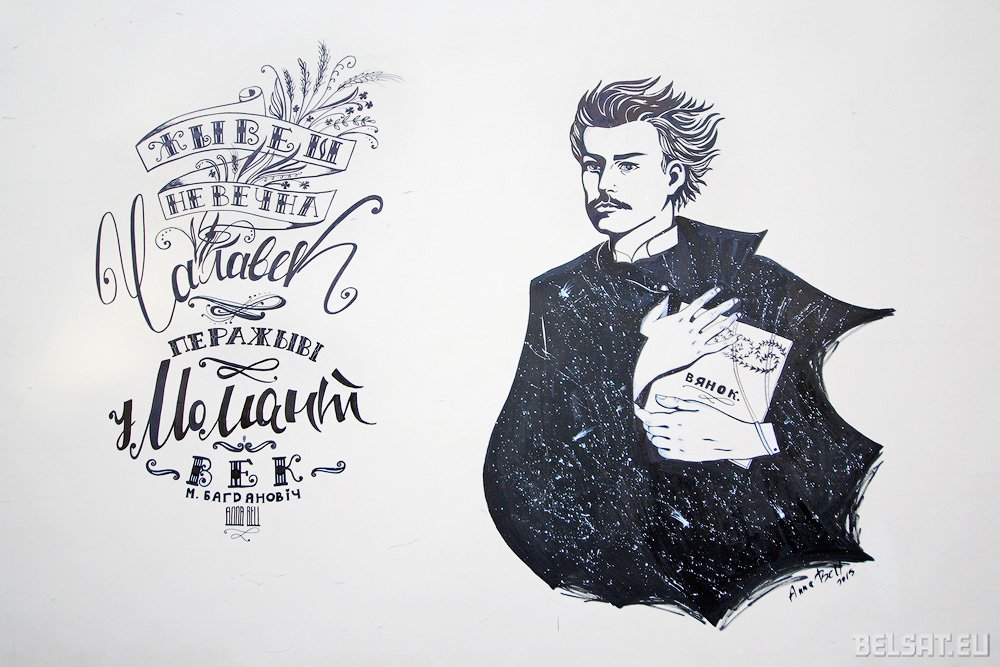 ЖЫВЕШ
НЕ ВЕЧНА
Чалавек
ПЕРАЖЫВІ
у Момант
ВЕК
М. БАГДАНОВІЧ
ANNA BELL
ВЯНОК.
Anna Bell
2015
BELSAT.EU